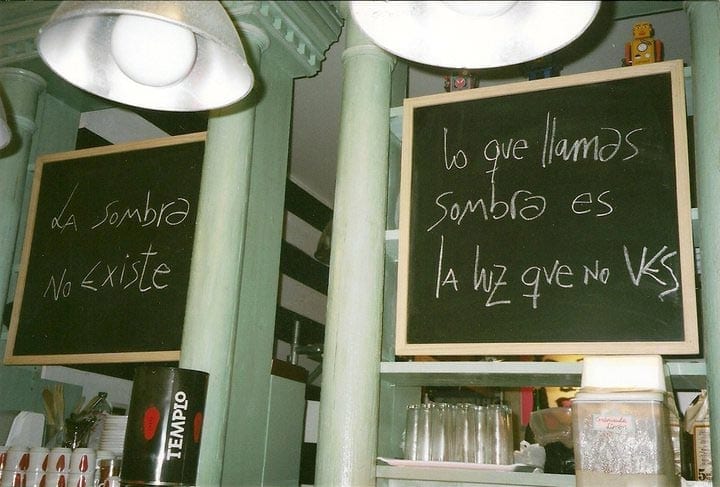 LA sombra
No existe
lo que llamas
sombra es
lA luz que no VES
TEMPLO